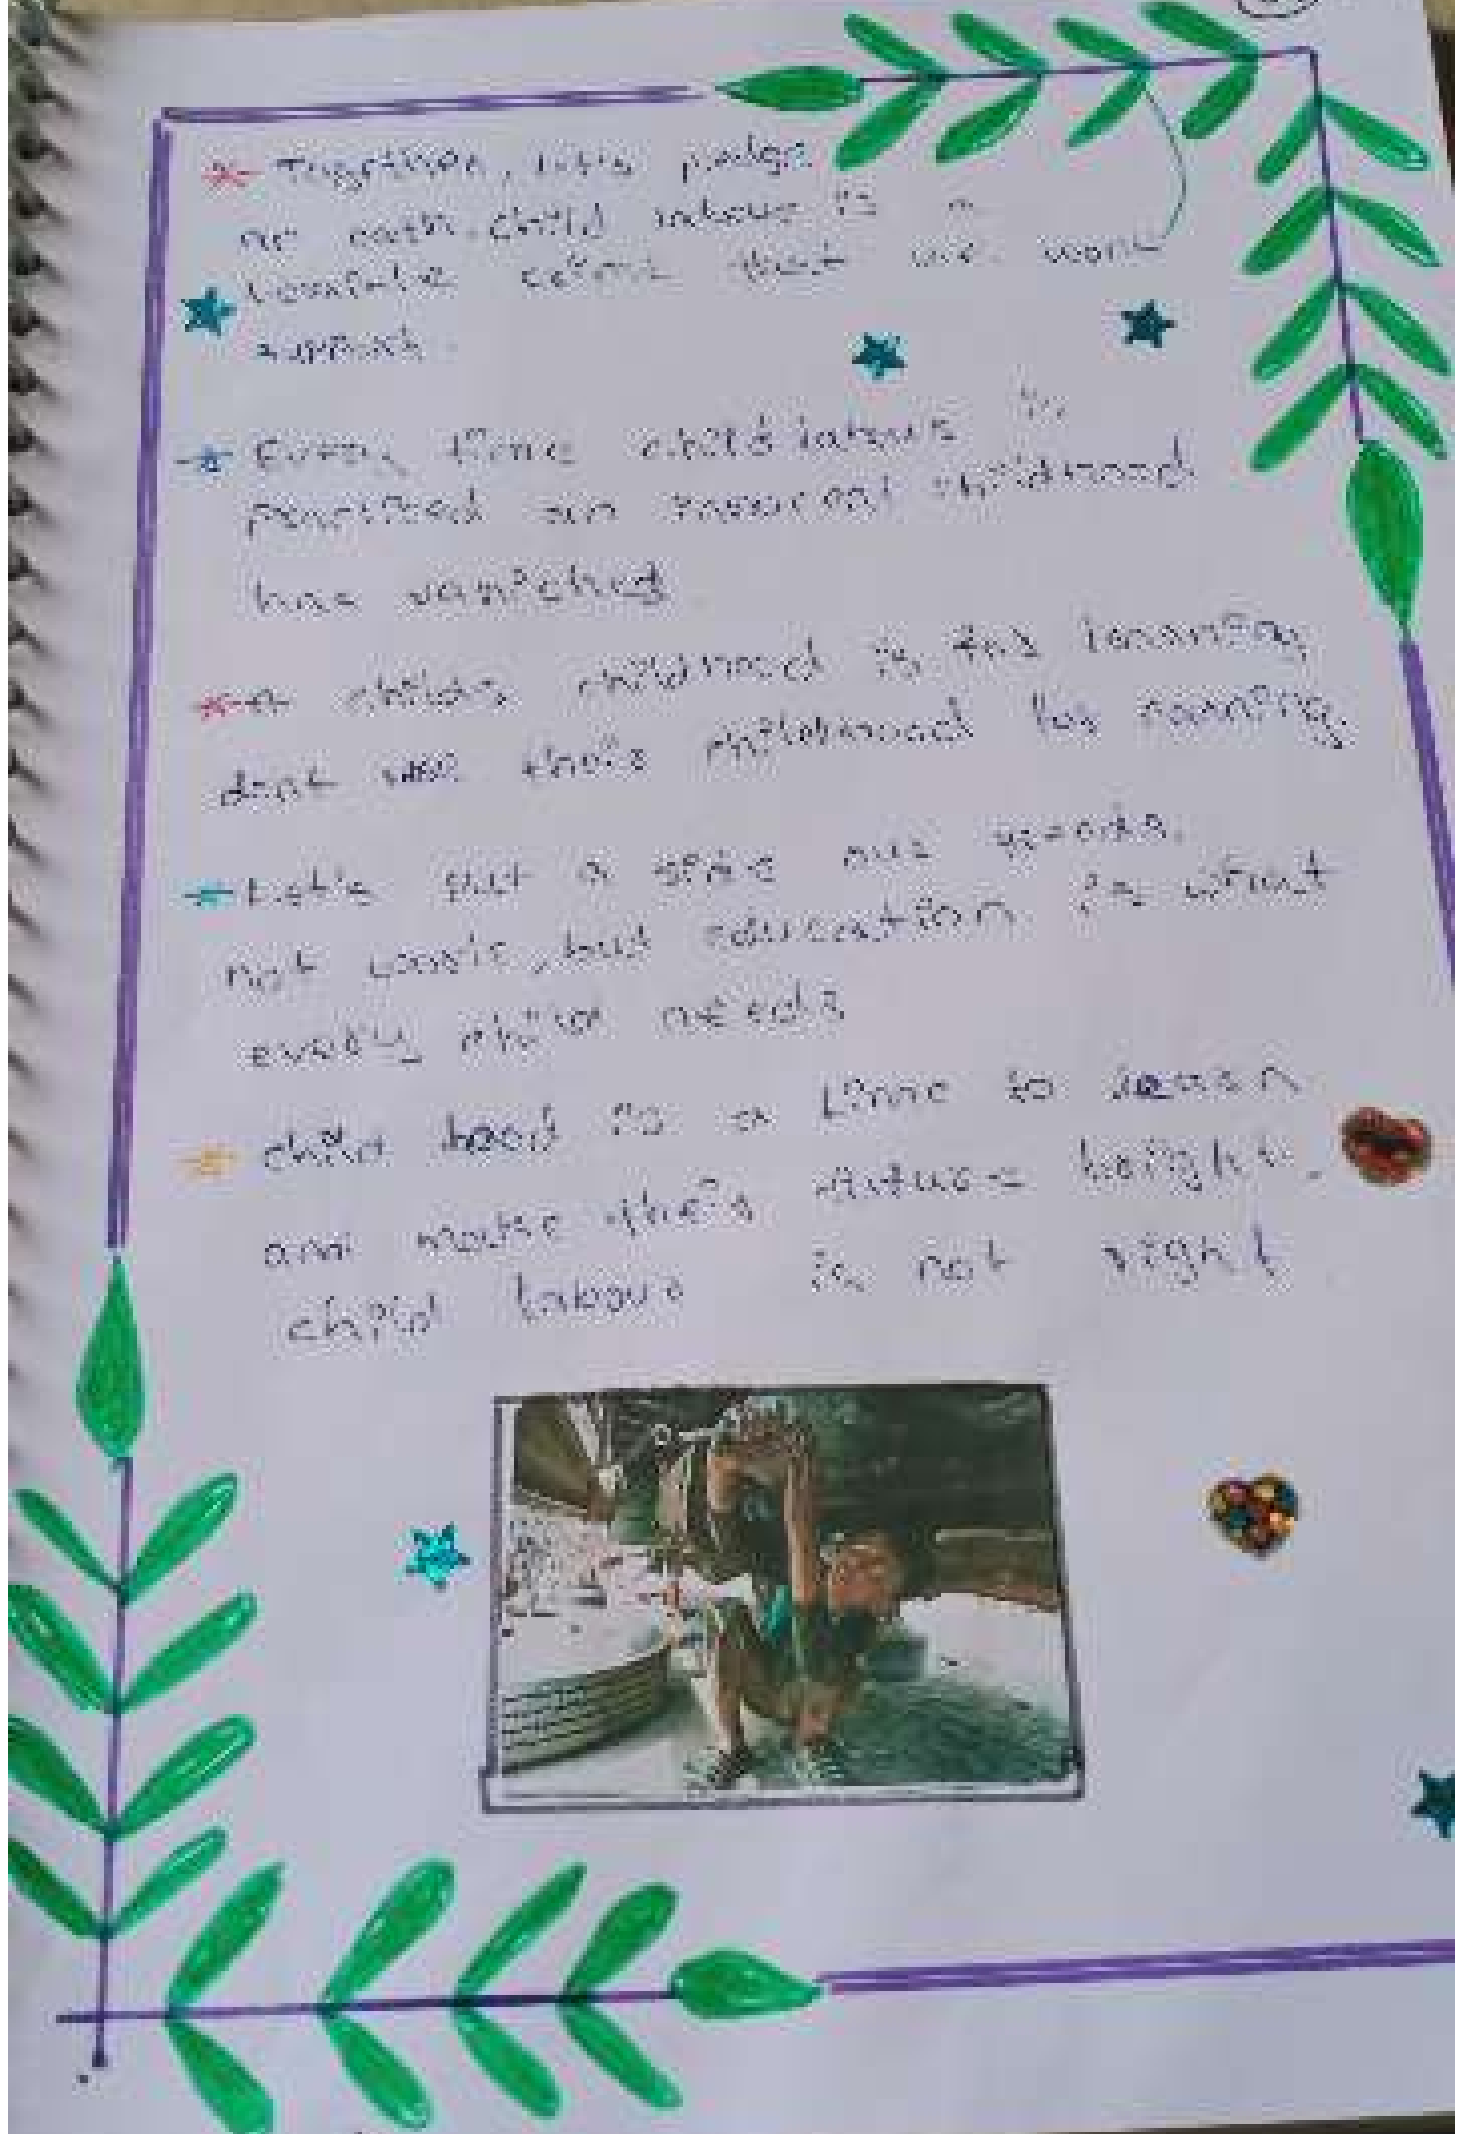 Together, let's pledge
an oath. child labour is a
terrible crime that we wont
support.
Every time child labour is
practiced an innocent childhood
has vanished
A childs childhood is for learning,
dont use their childhood for earning.
Let's put a spike our
not work, but education is what
every child needs
child hood is a time to learn
and make their future bright.
child labour is not right